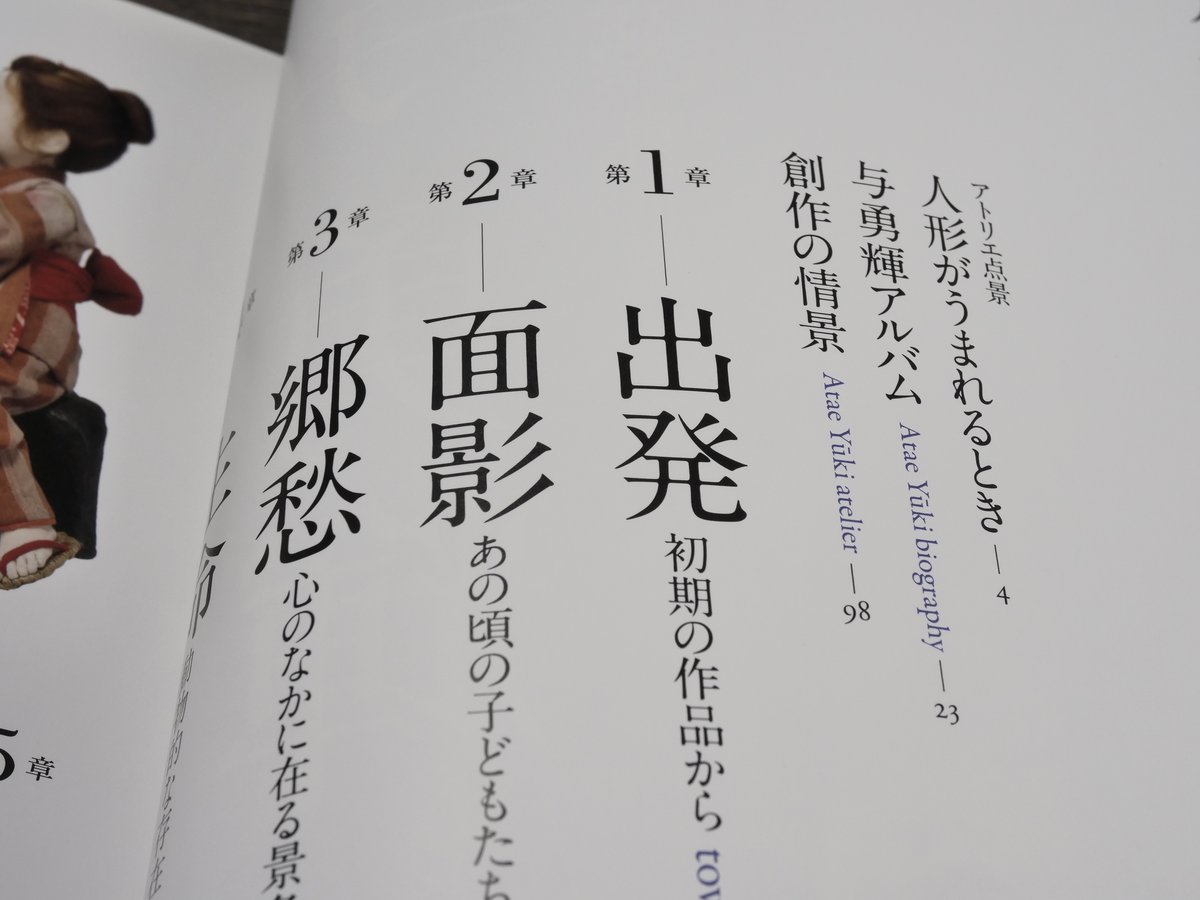 アトリエ点景
人形がうまれるとき — 4
与勇輝アルバム Atae Yūki biography — 23
創作の情景 Atae Yūki atelier — 98
第1章 — 出発 初期の作品から
第2章 — 面影 あの頃の子どもたち
第3章 — 郷愁 心のなかに在る景
動物的な存在
5章